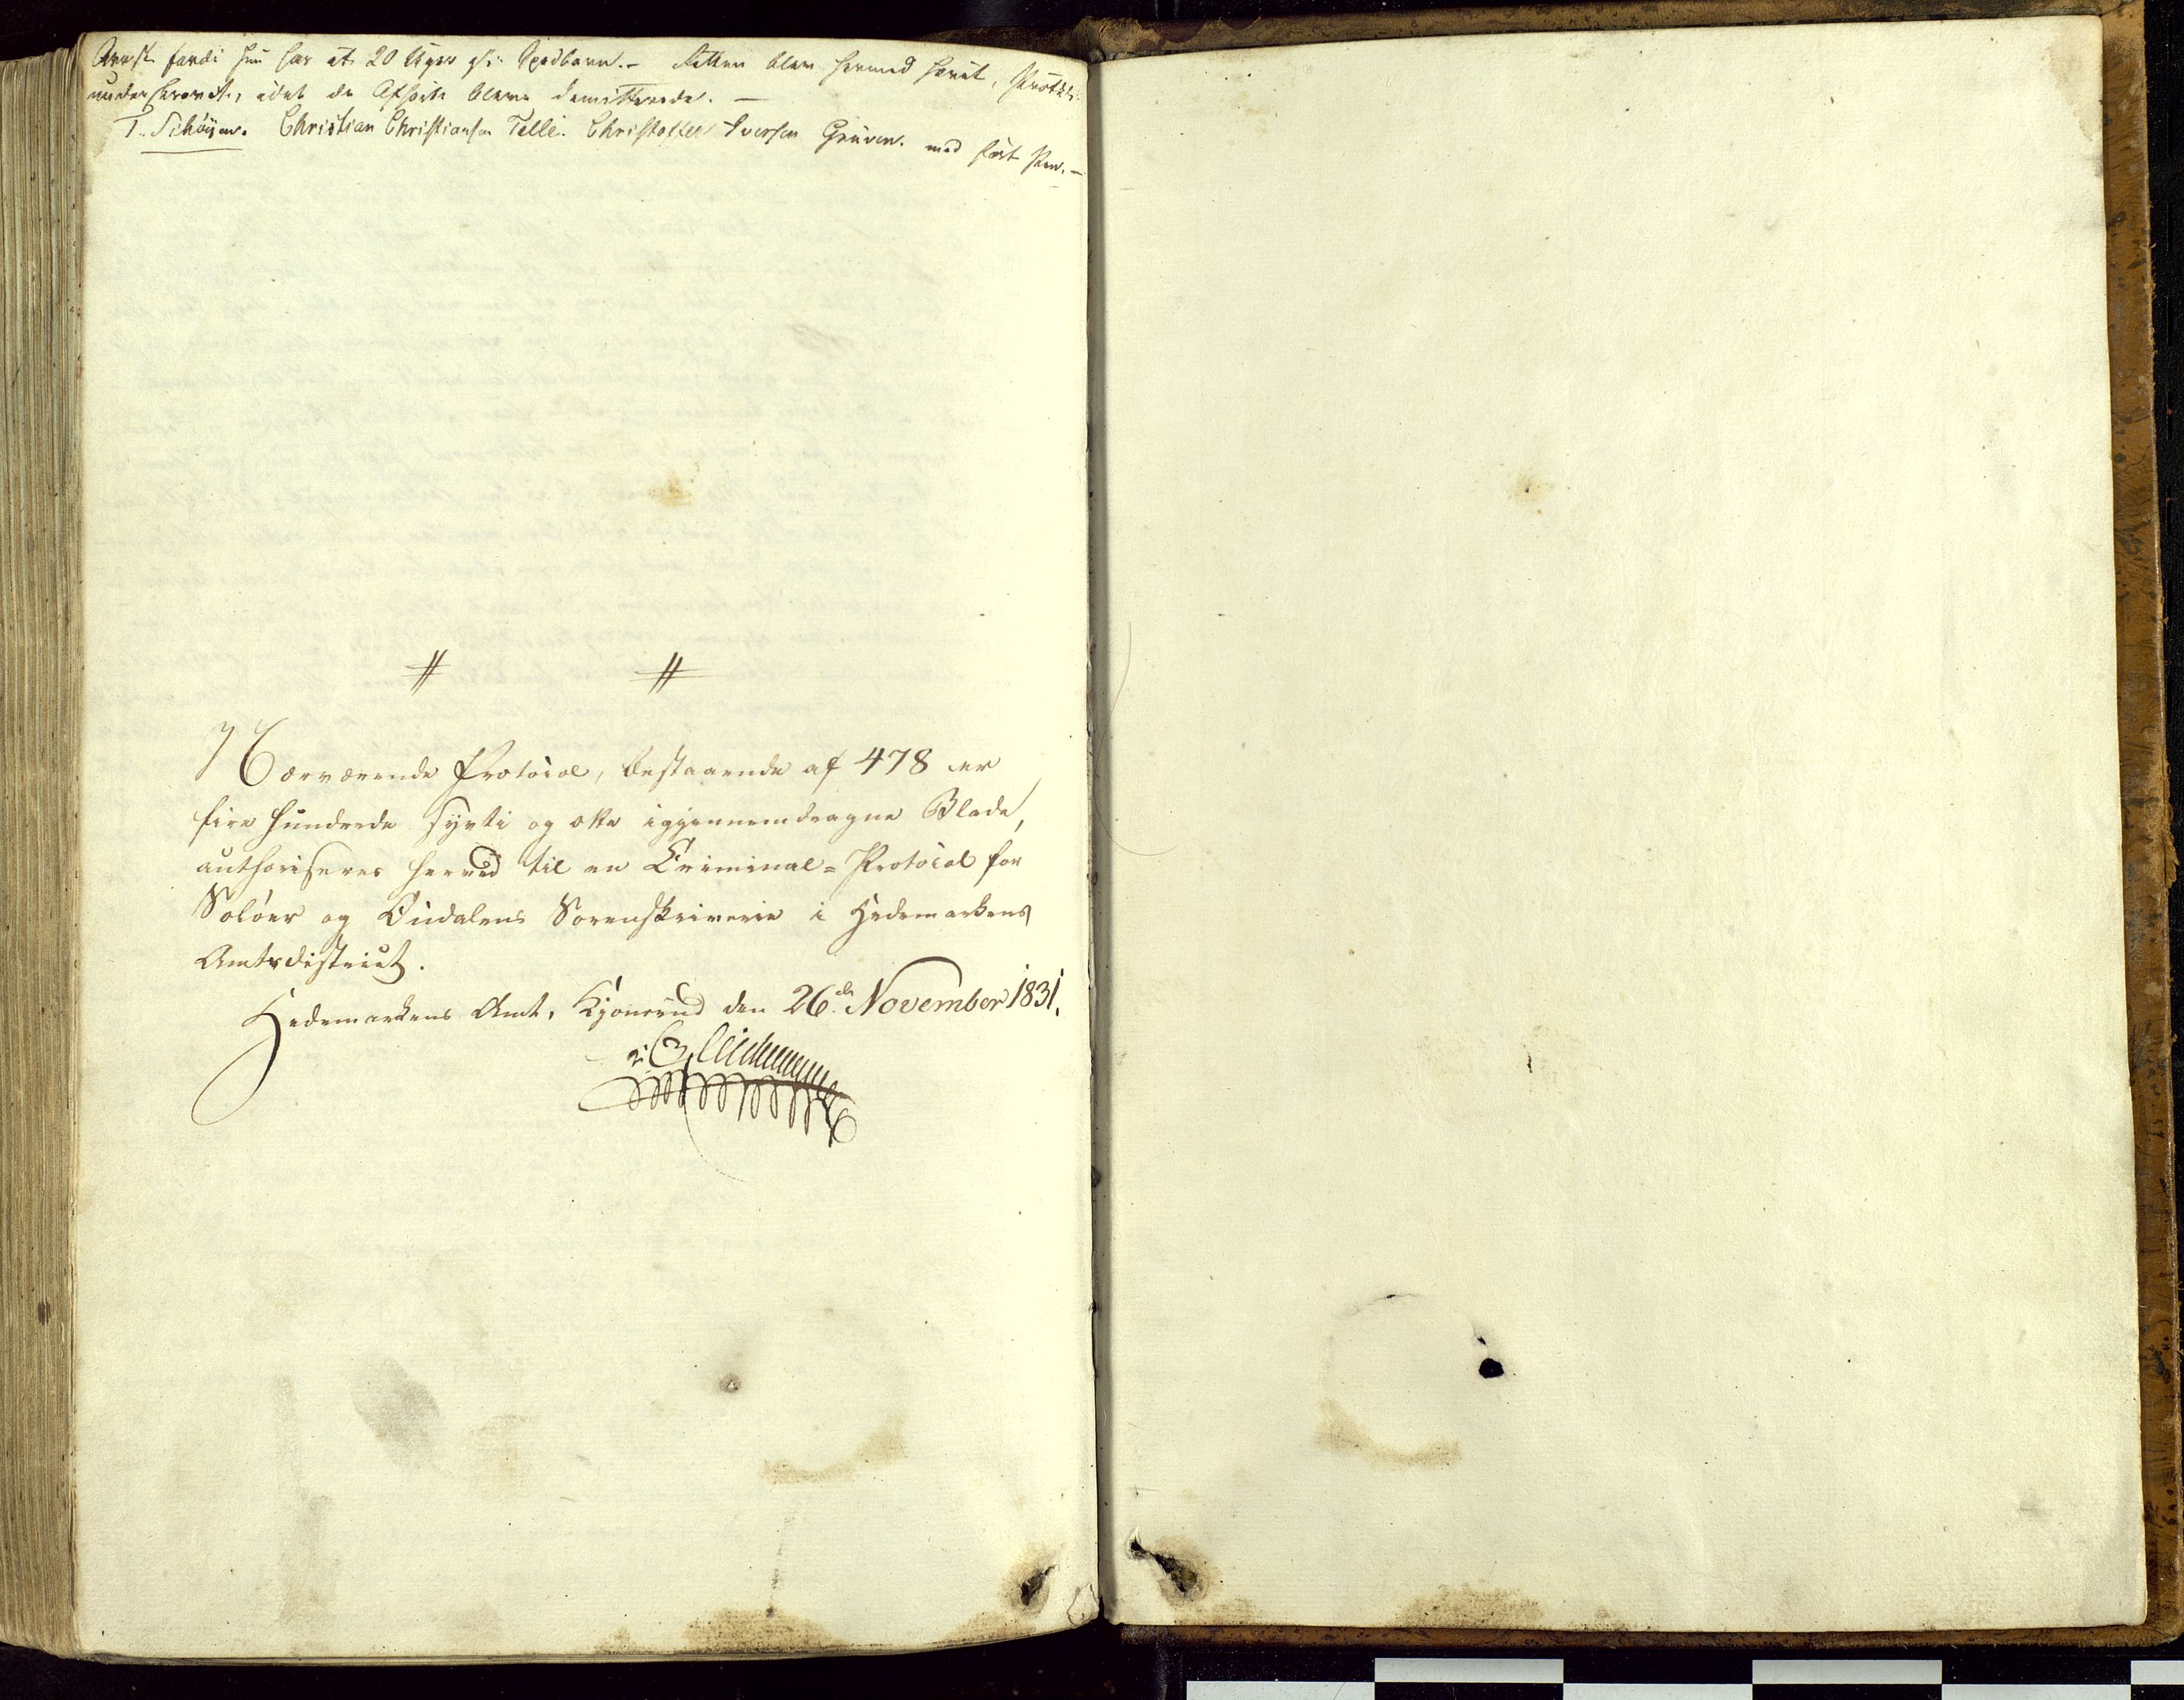 Arrest fordi hun har et 20 Uger gl: Spædbarn. – Retten blev hermed hævet, Protkl:
underskrevet, idet de Afhørte bleve demitterede. –
T. Schøyen. Christian Christiansen Telle. Christoffer Iversen Gruven. med ført Pen. –
# #
Nærværende Protocol, bestaaende af 478 er
fire hundrede syvti og otte igjennemdragne Blade,
authoriseres herved til en Criminal=Protocol for
Solöer og Oudalens Sorenskriverie i Hedemarkens
Amtsdistrict.
Hedemarkens Amt, Kjonerud den 26de November 1831.